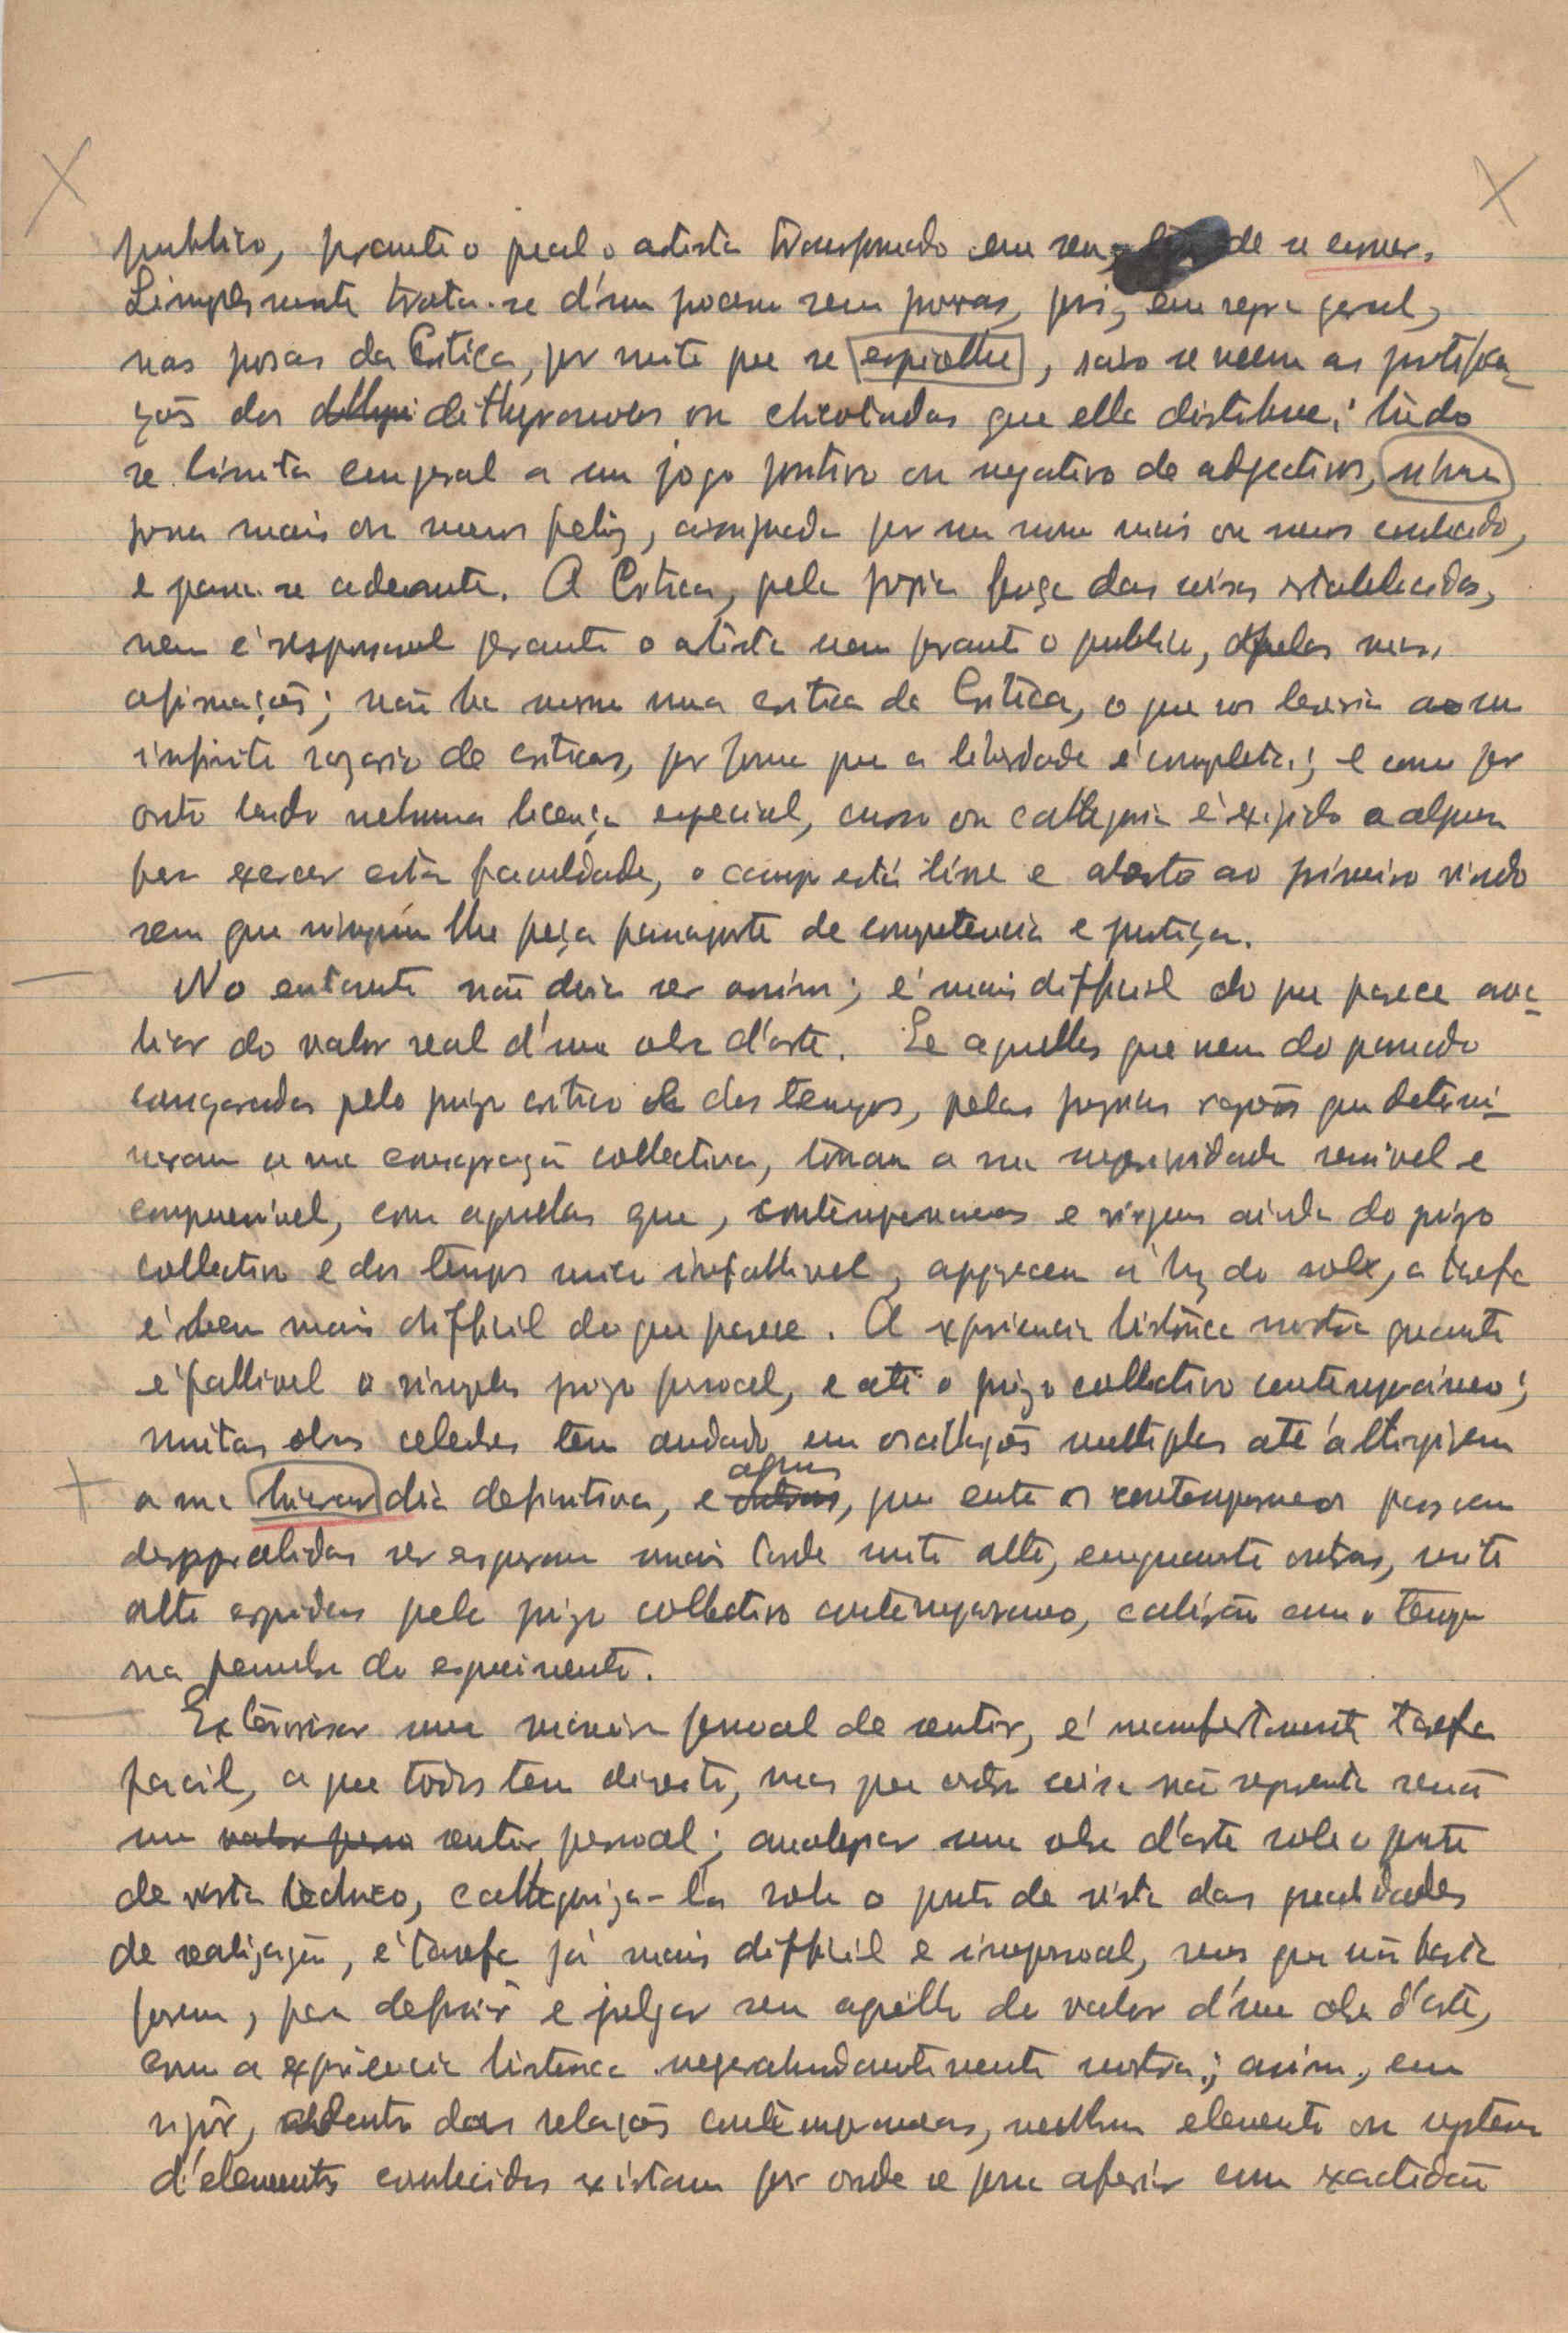 publico, perante o qual o artista transformado em reu, de se
Simplesmente trata-se d'um processo sem provas, pois, em regra geral,
nas prosas da Critica, por muito que se , raro se veem as justifica-
ções dos dithyrambos ou chicotadas que ella distribue; tudo
se limita em geral a um jogo positivo ou negativo de adjectivos, n'uma
prosa mais ou menos feliz, assignada por um nome mais ou menos conhecido,
e passa-se adeante. A Critica, pela propria força das coisas estabelecidas,
nem é responsavel perante o artista nem perante o publico, pelas suas
afirmações; não ha mesmo uma critica da Critica, o que nos levaria a um
infinito rozario de criticas, por forma que a liberdade é completa; e como por
outro lado nehuma licença especial, curso ou cathegoria é exigido a alguem
para exercer esta faculdade, o campo está livre e aberto ao primeiro vindo
sem que ninguem lhe peça passaporte de competencia e justiça.
No entanto não devia ser assim; é mais difficil do que parece ava-
liar do valor real d'uma obra d'arte. Se aquellas que veem do passado
consagradas pelo juizo critico dos tempos, pelas proprias razões que determi-
naram a sua consagração collectiva, tornam a sua superioridade sensivel e
comprensivel, com aquelas que, contemporaneas e virgens ainda do juizo
collectivo e dos tempos unico infallivel, apparecem á luz do sol, a tarefa
é bem mais difficil do que parece. A experiencia historica mostra quanto
é fallivel o simples juizo pessoal, e até o juizo collectivo contemporaneo;
muitas obras celebres tem andado em oscillações multiplas até attingirem
a sua definitiva, e algumas, que entre os contemporaneos passam
despercebidas se ergueram mais tarde muito alto, emquanto outras, muito
alto erguidas pelo juizo collectivo contemporaneo, cahirão com o tempo
na penumbra do esquecimento.
Exteriorisar uma maneira pessoal de sentir, é manifestamente tarefa
facil, a que todos tem direito, mas que outra coisa não representa senão
um sentir pessoal; analysar uma obra d'arte sob o ponto
de vista technico, cathegoriza-la sob o ponto de vista das qualidades
de realização, é tarefa já mais difficil e impessoal, mas que não basta
porem, para definir e julgar sem apello do valor d'uma obra d'arte,
como a experiencia historica superabundantemente mostra; assim, em
rigôr, dentro das relações contemporaneas, nenhum elemento ou systema
d'elementos conhecidos existam por onde se possa aferir com exactidão